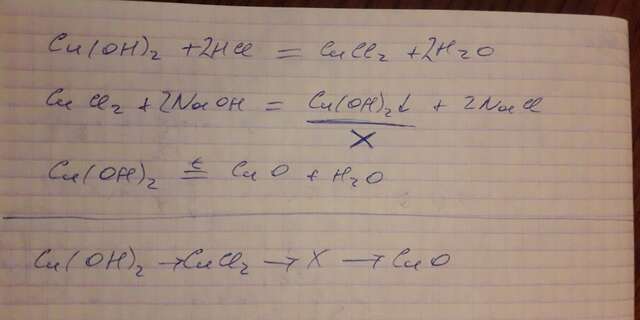 Cu(OH)₂ + 2HCl = CuCl₂ + 2H₂O
CuCl₂ + 2NaOH = Cu(OH)₂↓ + 2NaCl
X
Cu(OH)₂ =ᵗ CuO + H₂O
Cu(OH)₂ → CuCl₂ → X → CuO